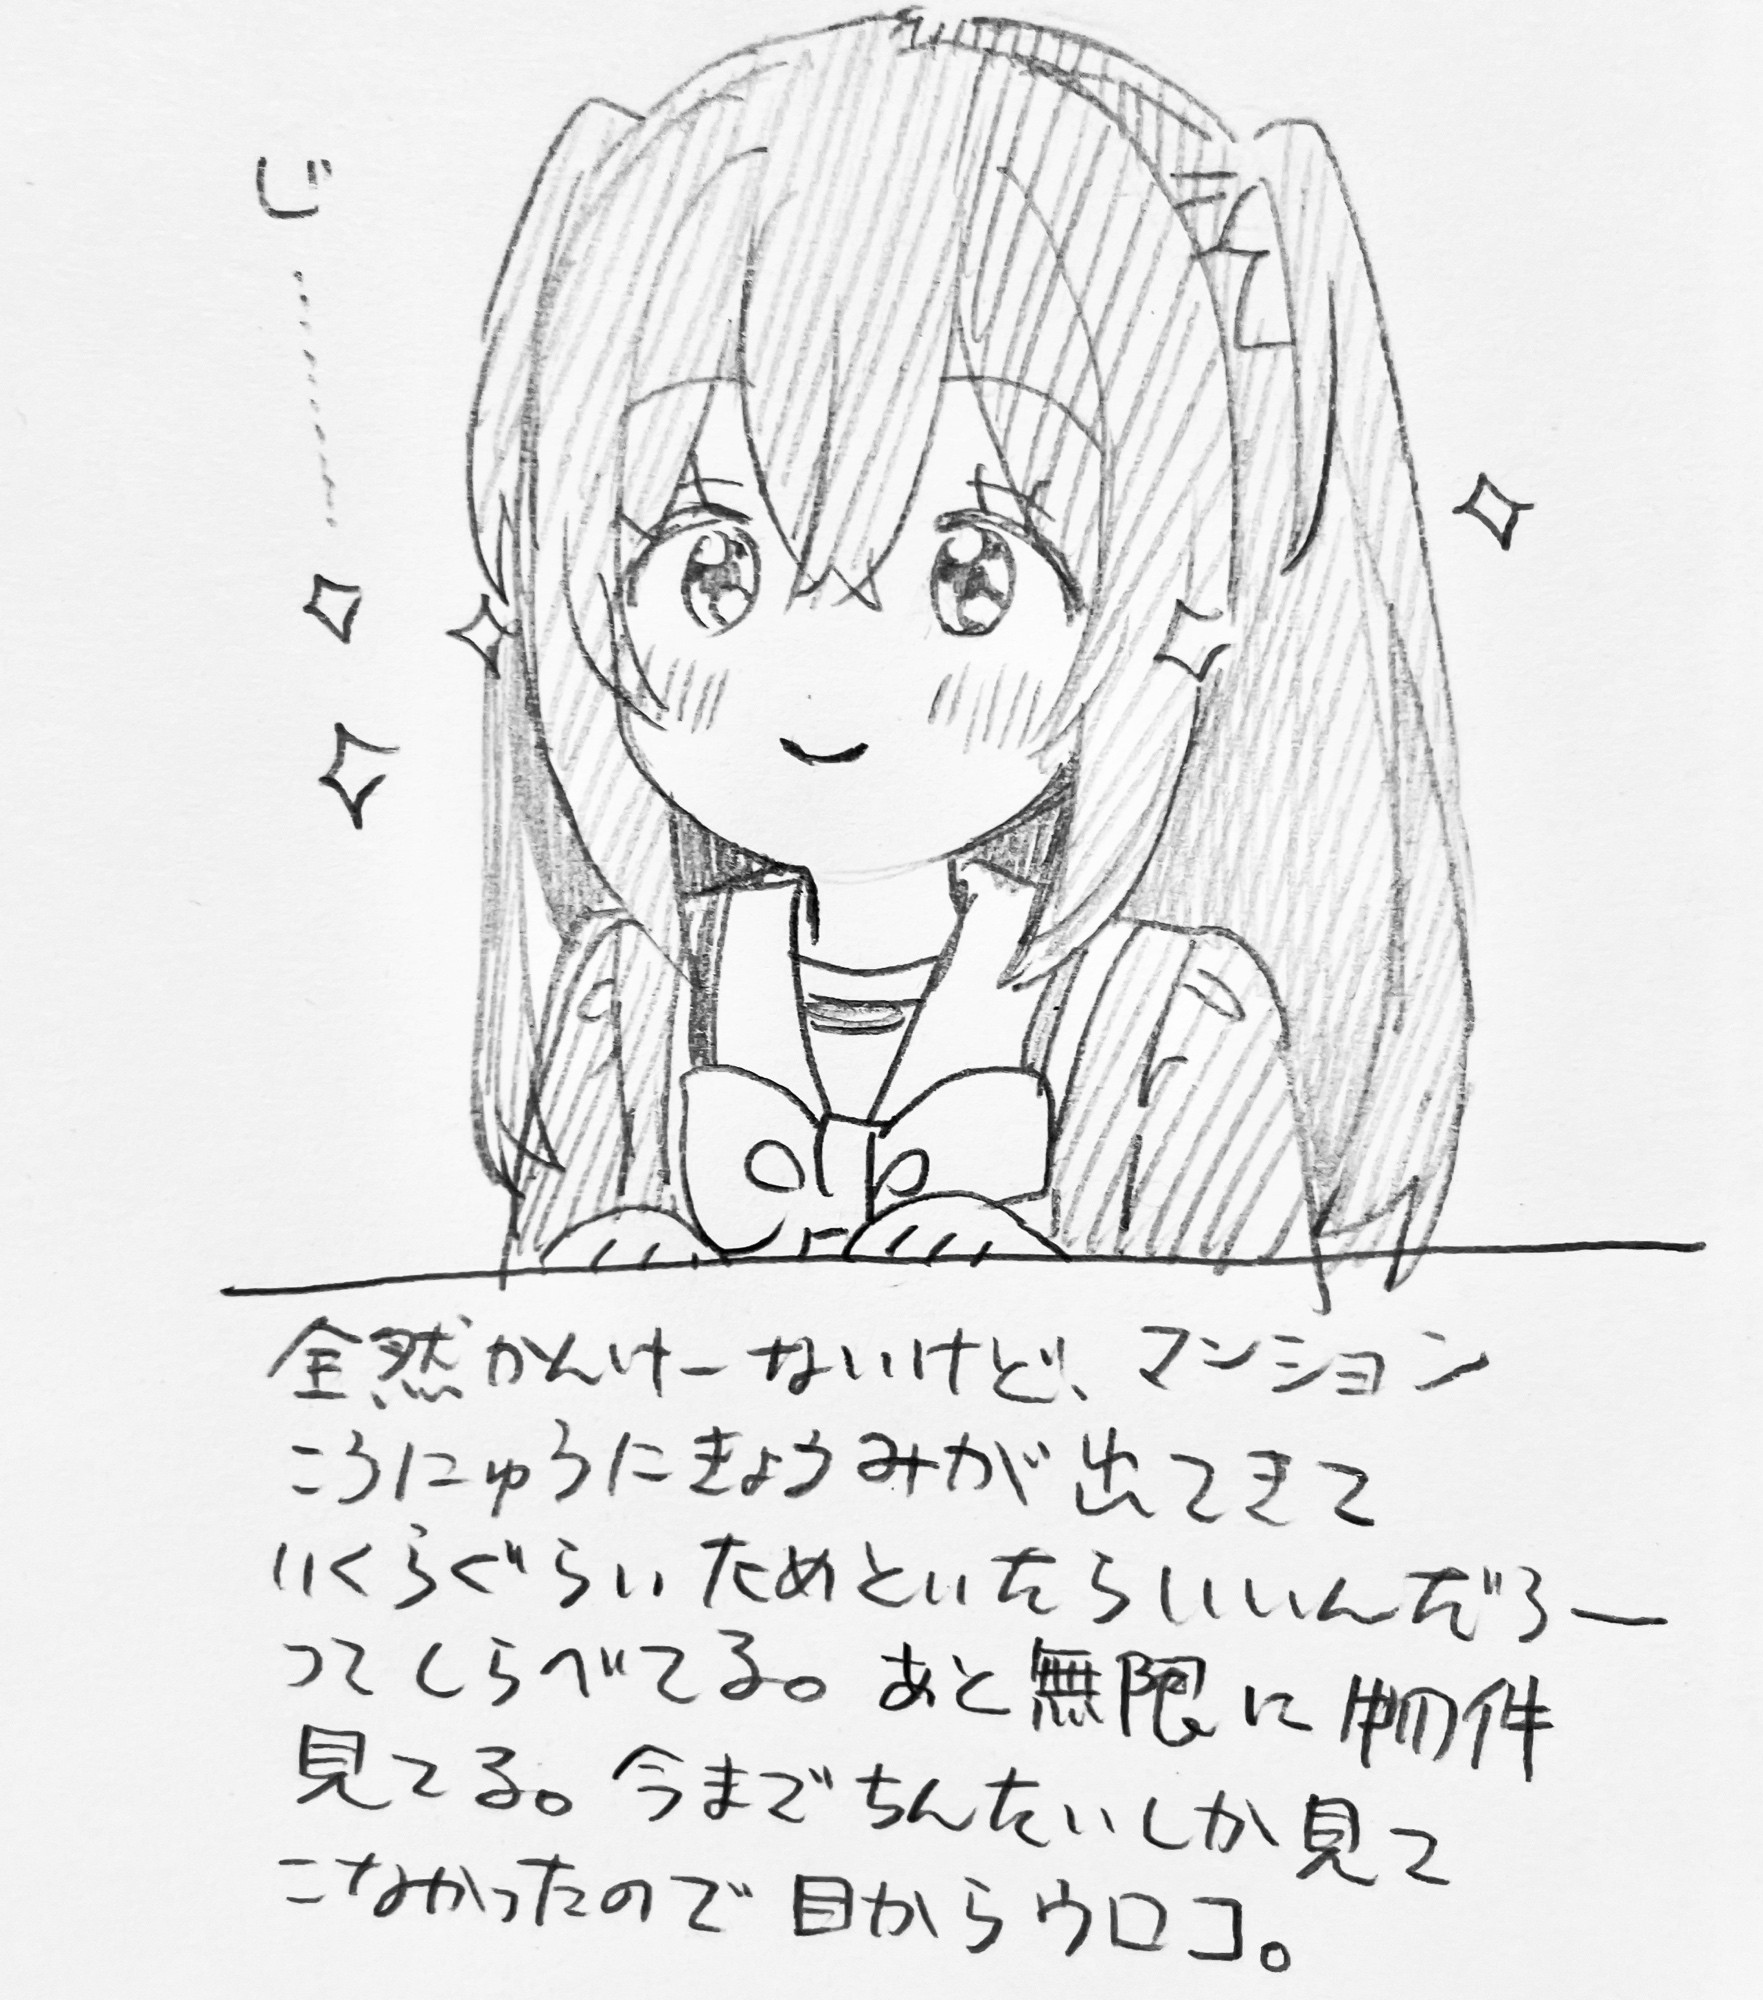 じ……
全然かんけーないけど、マンション
こうにゅうにきょうみが出てきて
いくらぐらいためといたらいいんだろー
ってしらべてる。あと無限に物件
見てる。今までちんたいしか見て
こなかったので目からウロコ。